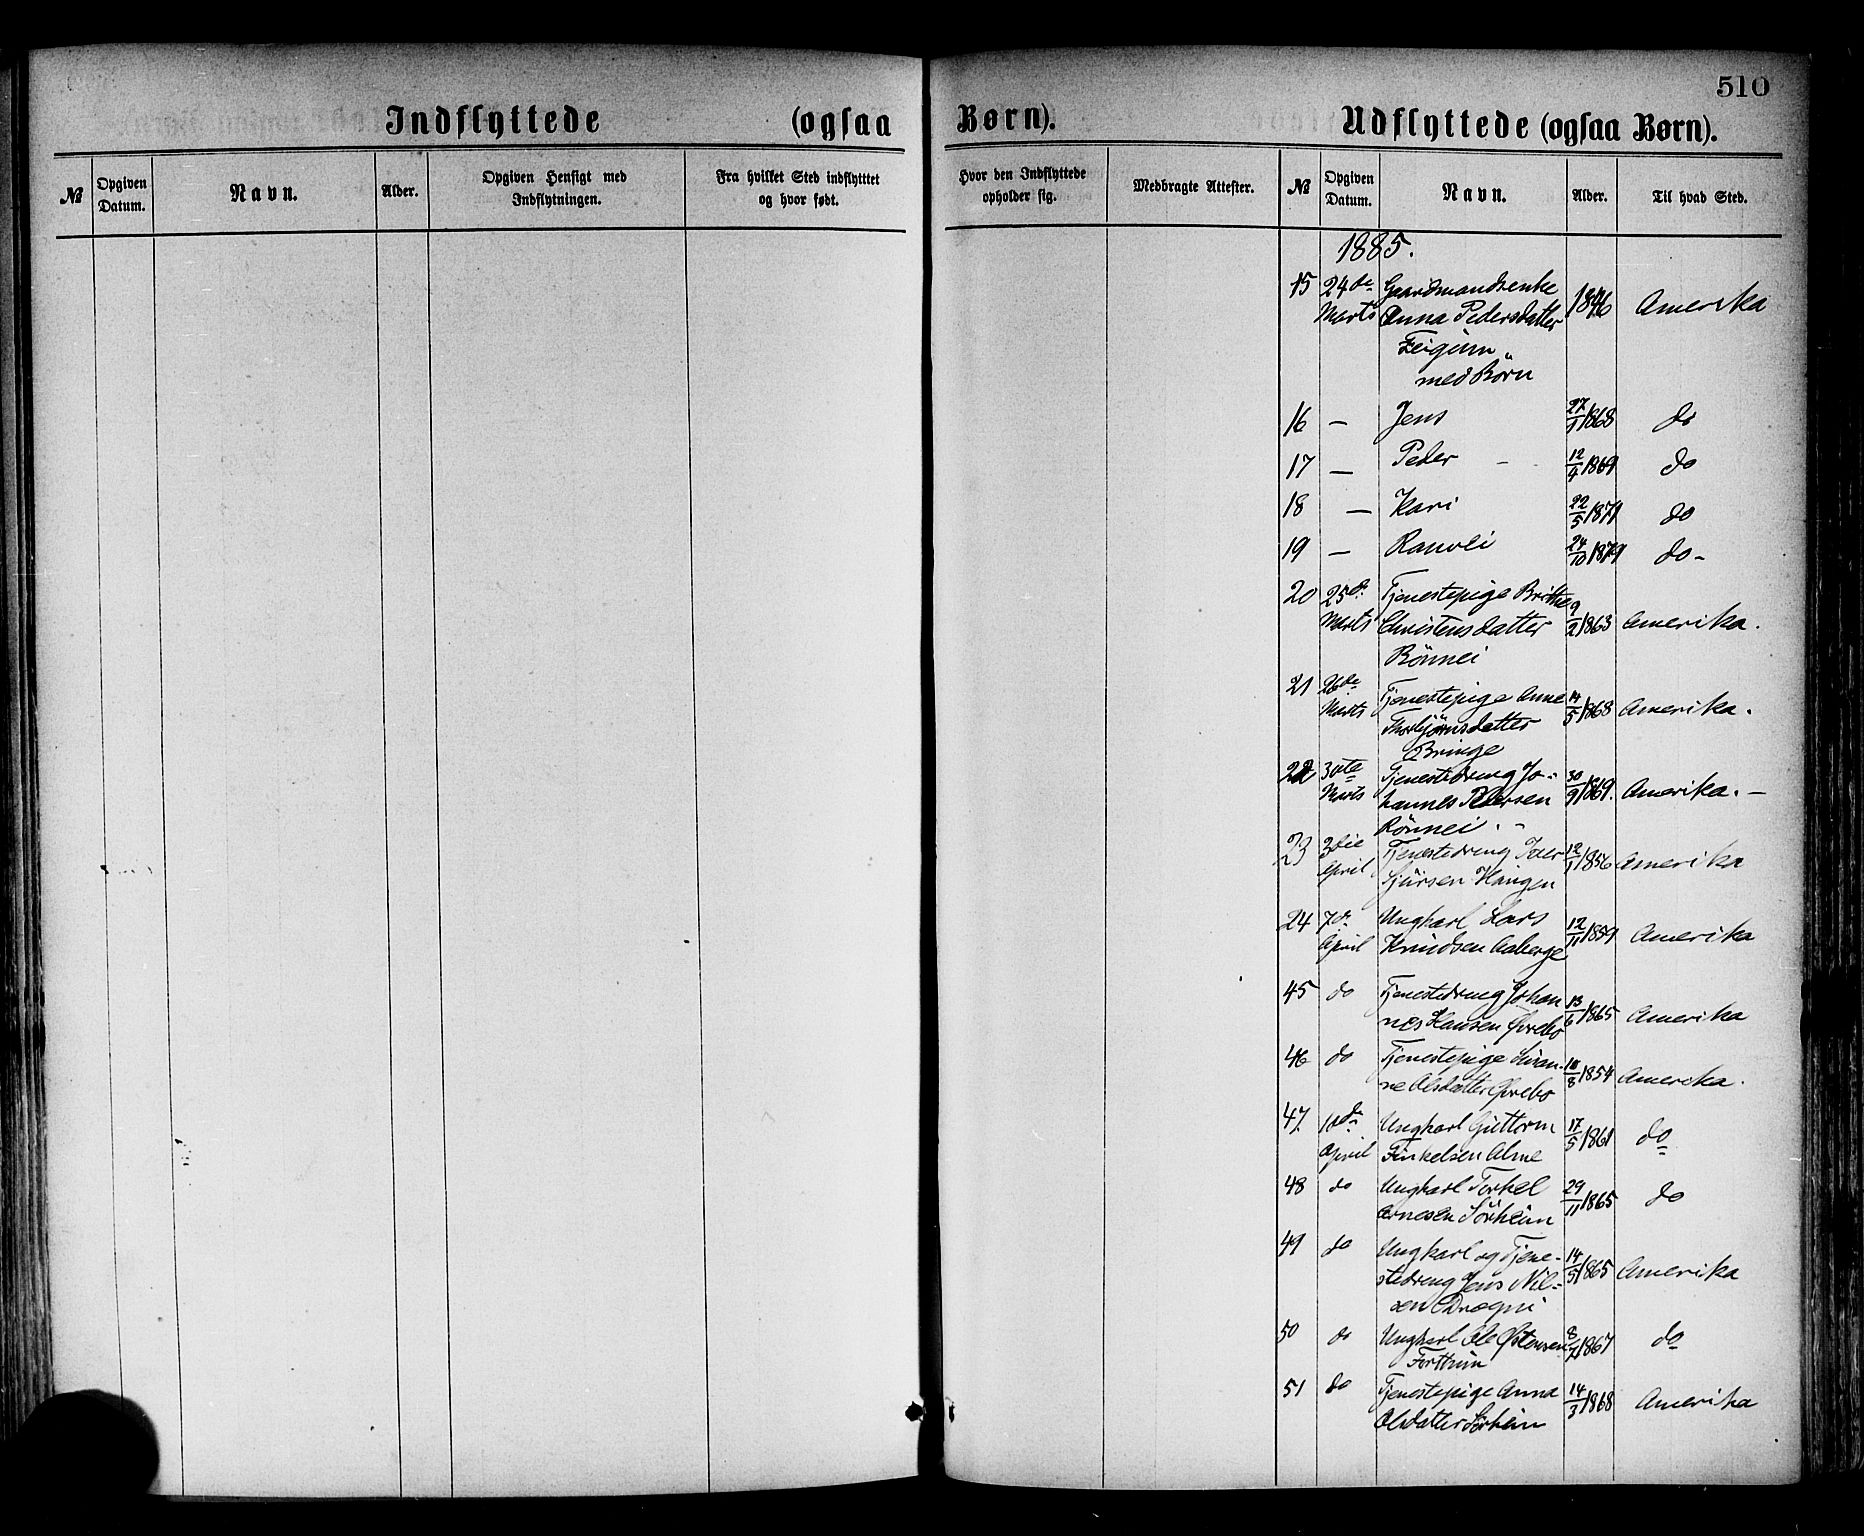 510
Indflyttede (ogsaa Børn).
Udflyttede (ogsaa Børn).
№
Opgiven Datum.
Navn.
Alder.
Opgiven Hensigt med Indflytningen.
Fra hvilket Sted indflytttet og hvor født.
Hvor den Indflyttede opholder sig.
Medbragte Attester.
№
Opgiven Datum.
Navn.
Alder.
Til hvad Sted.
1885.
15 24de Gaardmandsenke
Marts Anna Pedersdatter 1846 Amerika
Feigum
med Børn
16 — Jens 27/1 1868 do
17 — Peder 12/4 1869 do
18 — Kari 22/5 1871 do
19 — Ranvei 24/10 1879 do-
20 25de Tjenestepige Brithe 9/2 1863 Amerika.
Marts Christensdatter
Rönnei
21 26de Tjenestepige Anne 14/5 1868 Amerika.
Marts Thorbjørnsdatter
Bringe
22 30te Tjenestedreng Jo- 30/9 1869. Amerika. —
Marts hannes Pedersen
Rönnei
23 3die Tjenestedreng Iver 12/1 1856 Amerika
April Sjursen Haugen
24 7de Ungkarl Lars 12/11 1859 Amerika
April Knudsen Aaberge
45 do Tjenestedreng Johan 13/6 1865 Amerika
nes Hansen Øvrebo
46 do Tjenestepige Susan- 10/8 1854 Amerika.
ne Olsdatter Øvrebo
47 10de Ungkarl Guttorm 17/5 1861 do
April Finkelsen Alme
48 do Ungkarl Torkel 29/11 1865 do
Arnesen Sørheim
49 do Ungkarl og Tjene- 14/5 1865 Amerika
stedreng Jens Nil-
sen Drægni
50 do Ungkarl Ole Østensen 8/7 1867 do
Forthun
51 do Tjenestepige Anna 14/3 1868 Amerika
Olsdatter Sørheim